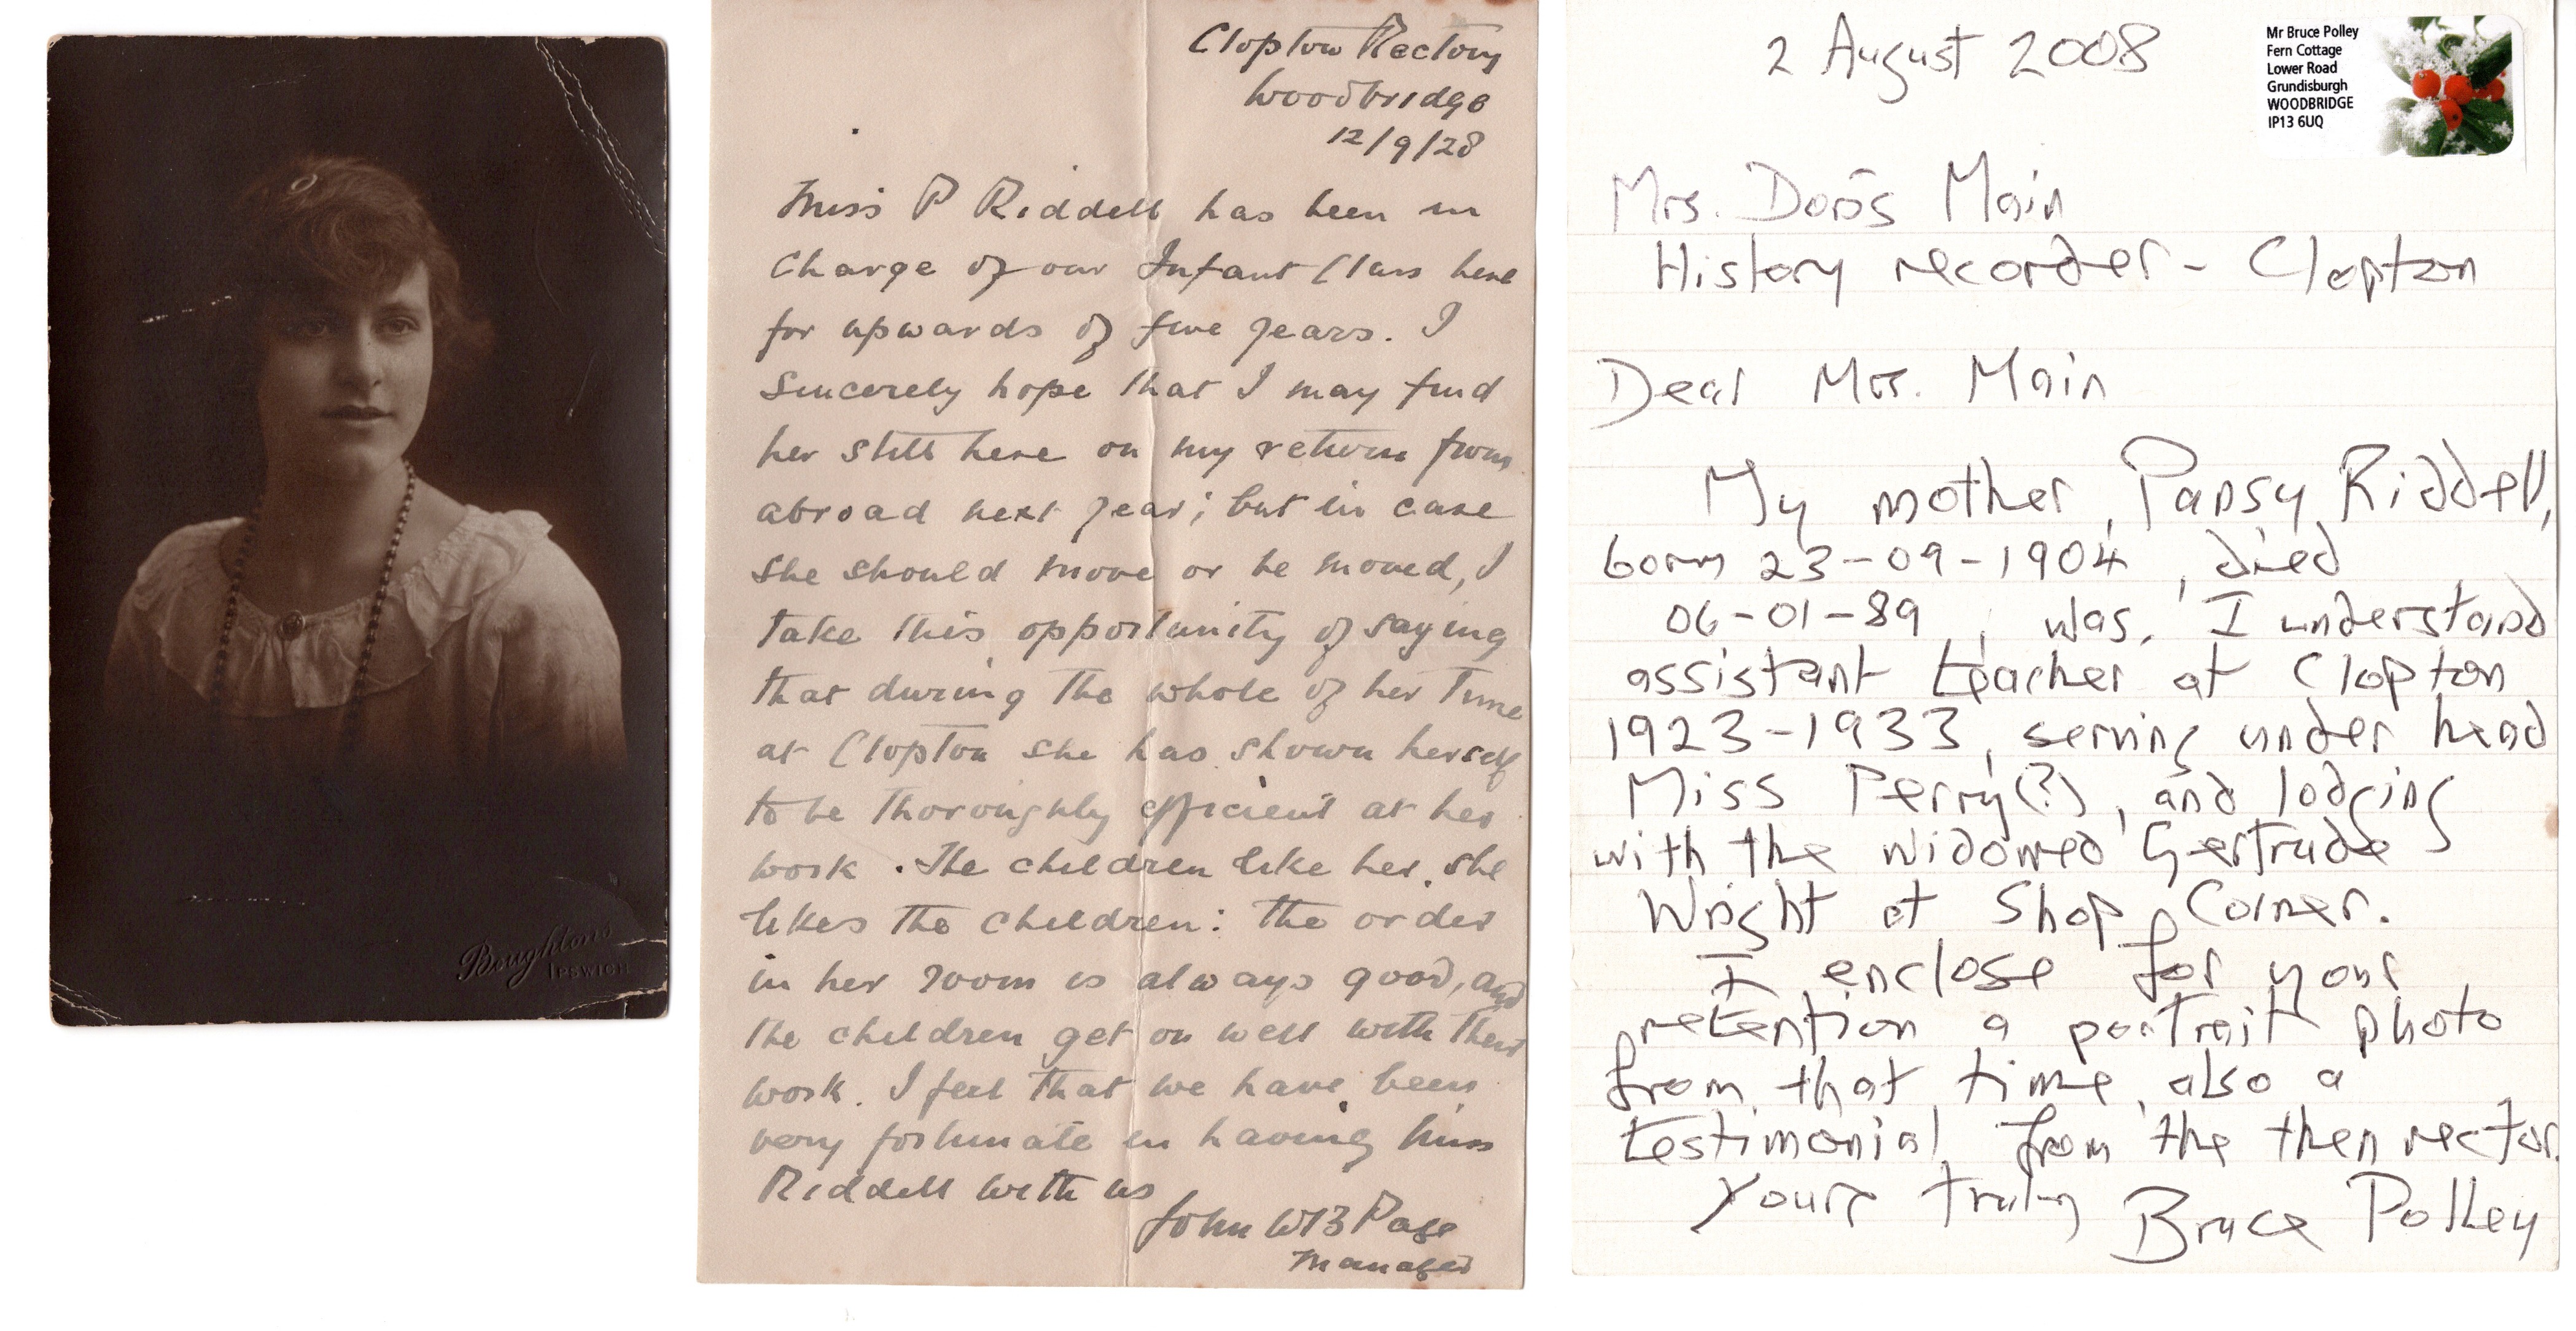 Boughtons
IPSWICH
Clopton Rectory
Woodbridge
12/9/28
Miss P Riddell has been in
Charge of our Infant Class here
for upwards of five years. I
sincerely hope that I may find
her still here on my return from
abroad next year; but in case
she should move or be moved, I
take this opportunity of saying
that during the whole of her time
at Clopton she has shown herself
to be thoroughly efficient at her
work. The children like her, she
likes the children: the order
in her room is always good, and
the children get on well with their
work. I feel that we have been
very fortunate in having Miss
Riddell with us
John WB Page
Manager
2 August 2008
Mr Bruce Polley
Fern Cottage
Lower Road
Grundisburgh
WOODBRIDGE
IP13 6UQ
Mrs. Doris Main
History recorder - Clopton
Dear Mrs. Main
My mother, Pansy Riddell,
born 23-09-1904, died
06-01-89, was, I understand
assistant teacher at Clopton
1923-1933, serving under head
Miss Perry(?), and lodging
with the widowed Gertrude
Wright at Shop Corner.
I enclose for your
retention a portrait photo
from that time, also a
testimonial from the then rector.
Yours truly Bruce Polley